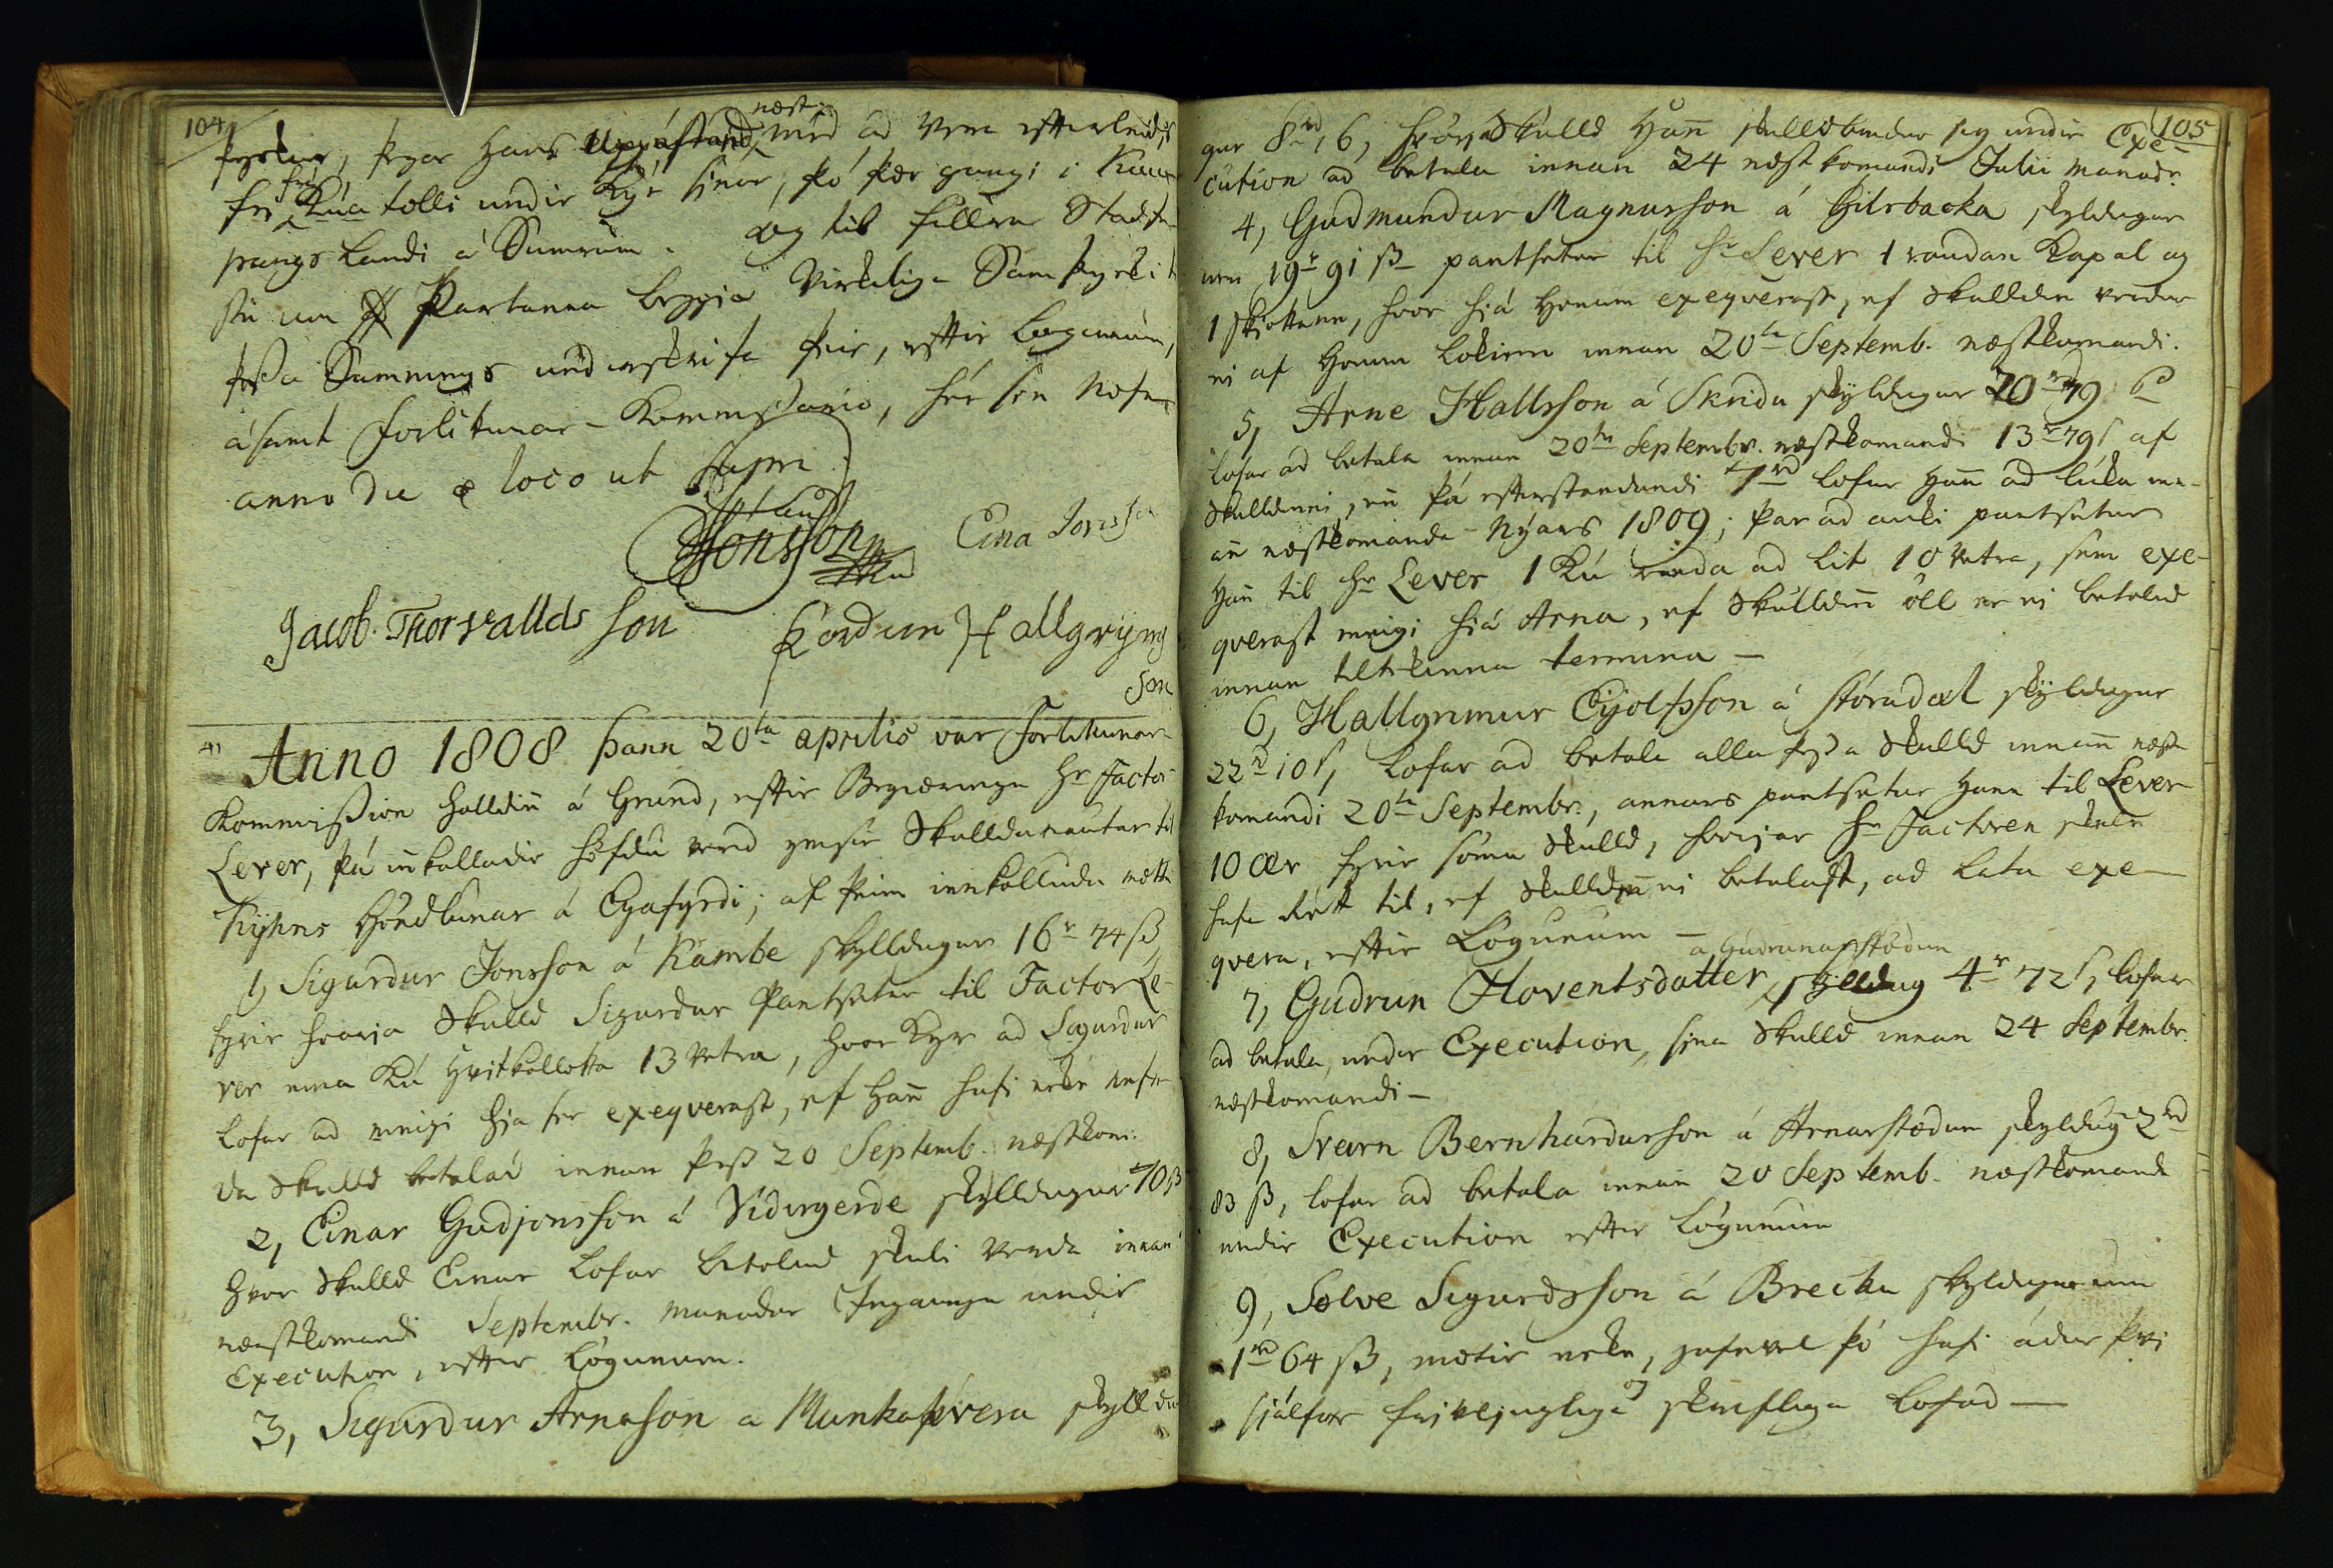 104
þyrlur, þegar hans uppástand, næst með að vera eftirleiðis
frí frá Kúa tolli undir Kýr sínar, þó þær gangi i Kaup
pangs Landi á Sumrum. Og til fullra Staðfe
stu um Partanna beggia virkilega Samþyckt
þessa Samnings undirskrifa þeir, eftir Lögunum,
ásamt Forlikunar-Kommissario, hér sín Nöfn
anno die & loco ut supra.
Jónsson Eina Jonsson
Jacob Thorvallds son Þordur Hallgryms
son
Anno 1808 þann 20ta aprilis var Forlikunar
Kommission halldin á Grund, eftir Begiæringu Hr Factor
Lever, þá innkalladir höfðu verid ymsir Skulldunautar til
Kyhns Höndlunar á Eyafyrdi; af þeim innkölludu mætti
1, Sigurdur Jonsson á Kambe skylldugur 16r 74 ß,
fyrir hvoria Skulld Sigurdur Pantsetur til Factor Le-
ver eina Kú Hvitkollotta 13 vetra, hvor Kyr ad Sigurdur
lofar ad meigi hia sér exeqverast, ef Hann hafi ecki nefn
da Skulld betalad innan þess 20 Septemb. næstkom:
2, Einar Gudjonsson á Vidirgerde skylldugur 70 ß
hvor Skulld Einar Lofar betalud skuli verda innan
næstkomandi Septembr. manadar Ingangu undir
Execution, eftir Lögunum.
3, Sigurdur Arnason a Munkaþvera skylldu
105
gur 8rd, 6, hvöria Skulld Hann skuldbindur sig undir Exe-
cution ad betala innan 24 næstkomandi Julii manadr.
4, Gudmundur Magnusson á Gilsbacka skyldugur
um 19r 91 ß pantsetur til Hr Lever 1 raudan Kapal og
1 skjottann, hvor hiá Honum exeqverast, ef Skulldin verdur
ei af Honum Lokinn innan 20ta Septemb. næstkomandi.
5, Arne Hallsson á Skridu skyldugur 20rd 79 ß
lofar ad betala innan 20ta Septembr. næstkomandi 13r 79 ß af
Skulldinni, en þá eftirstandandi 7rd lofar Hann ad lúka inn-
an næstkomanda Nýars 1809; þar ad auki pantsetur
Hann til Hr Lever 1 Kú rauda ad lit 10 vetra, sem exe-
qverast meigi hiá Arna, ef Skulldin öll er ei betalud
innan tilteknna termina —
6, Hallgrimur Eyolfsson á Stóradal skyldugur
22rd 10 ß, Lofar ad betala alla þessa Skulld innan næst-
komandi 20ta Septembr., annars pantsetur Hann til Lever
10 Ær fyrir sömu Skulld, hvoriar Hr Factoren skule
hafa Rétt til, ef Skulldin ei betalast, ad Lata exe-
qvera, eftir Lögunum —
7, Gudrun Floventsdotter á Gudrunarstödum skylldug 4r 72 ß, lofar
ad betala, under Execution, sina Skulld innan 24 Septembr.
næstkomandi —
8, Svein Bernhardursson á Arnarstodum skyldug 2rd
83 ß, lofar ad betala innan 20 Septemb. næstkomandi
undir Execution eftir Lögunum
9, Solve Sigurdsson á Brecku skyldugur um
1rd 64 ß, mætir ecki, jafnvel þó hafi ádur þvi
sjálfur friviljuglega og skriflega lofad —